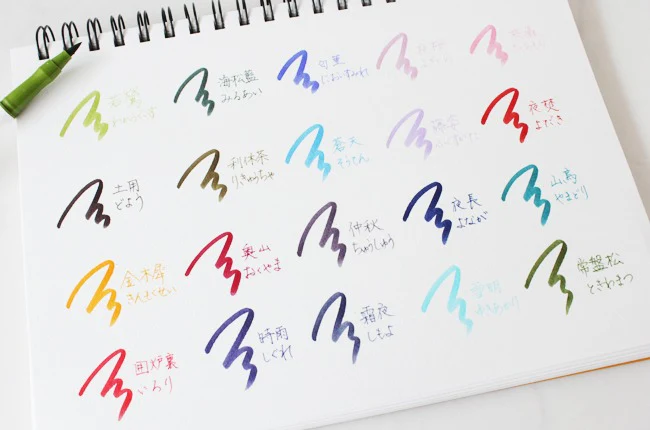 海松藍
みるあい
匂菫
においすみれ
土用
どよう
利休茶
りきゅうちゃ
蒼天
そうてん
夜焚
よだき
金木犀
きんもくせい
奥山
おくやま
仲秋
ちゅうしゅう
夜長
よなが
山鳥
やまどり
囲炉裏
いろり
時雨
しぐれ
霜夜
しもよ
常盤松
ときわまつ